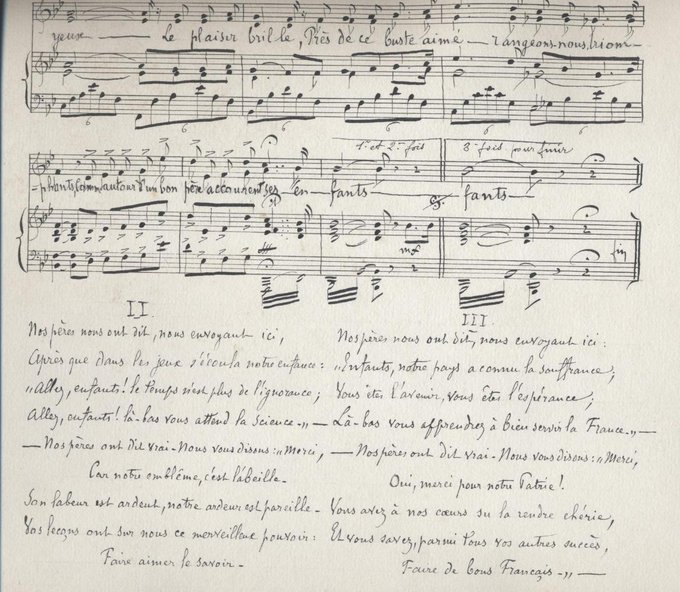 yeux — Le plaisir brille, Près de ce buste aimé — rangeons-nous, triom-
6 6 6 6 6 6
1re et 2e fois 3e fois pour finir
-phants, Comm' autour d'un bon père accourent ses en- fants — fants —
mf fin
II
Nos pères nous ont dit, nous envoyant ici,
Après que dans les jeux s'écoula notre enfance :
"Allez, enfants ! le temps n'est plus de l'ignorance ;
Allez, enfants ! là-bas vous attend la Science.„ —
— Nos pères ont dit vrai - Nous vous disons : "Merci,
Car notre emblême, c'est l'abeille -
Son labeur est ardent, notre ardeur est pareille -
Vos leçons ont sur nous ce merveilleux pouvoir :
Faire aimer le savoir -
III
Nos pères nous ont dit, nous envoyant ici :
"Enfants, notre pays a connu la souffrance ;
Vous êtes l'avenir, vous êtes l'espérance ;
Là-bas vous apprendrez à bien servir la France.„ —
— Nos pères ont dit vrai - Nous vous disons : "Merci,
Oui, merci pour notre Patrie !
Vous avez à nos cœurs su la rendre chérie,
Et vous savez, parmi tous vos autres succès,
Faire de bons Français -„ —